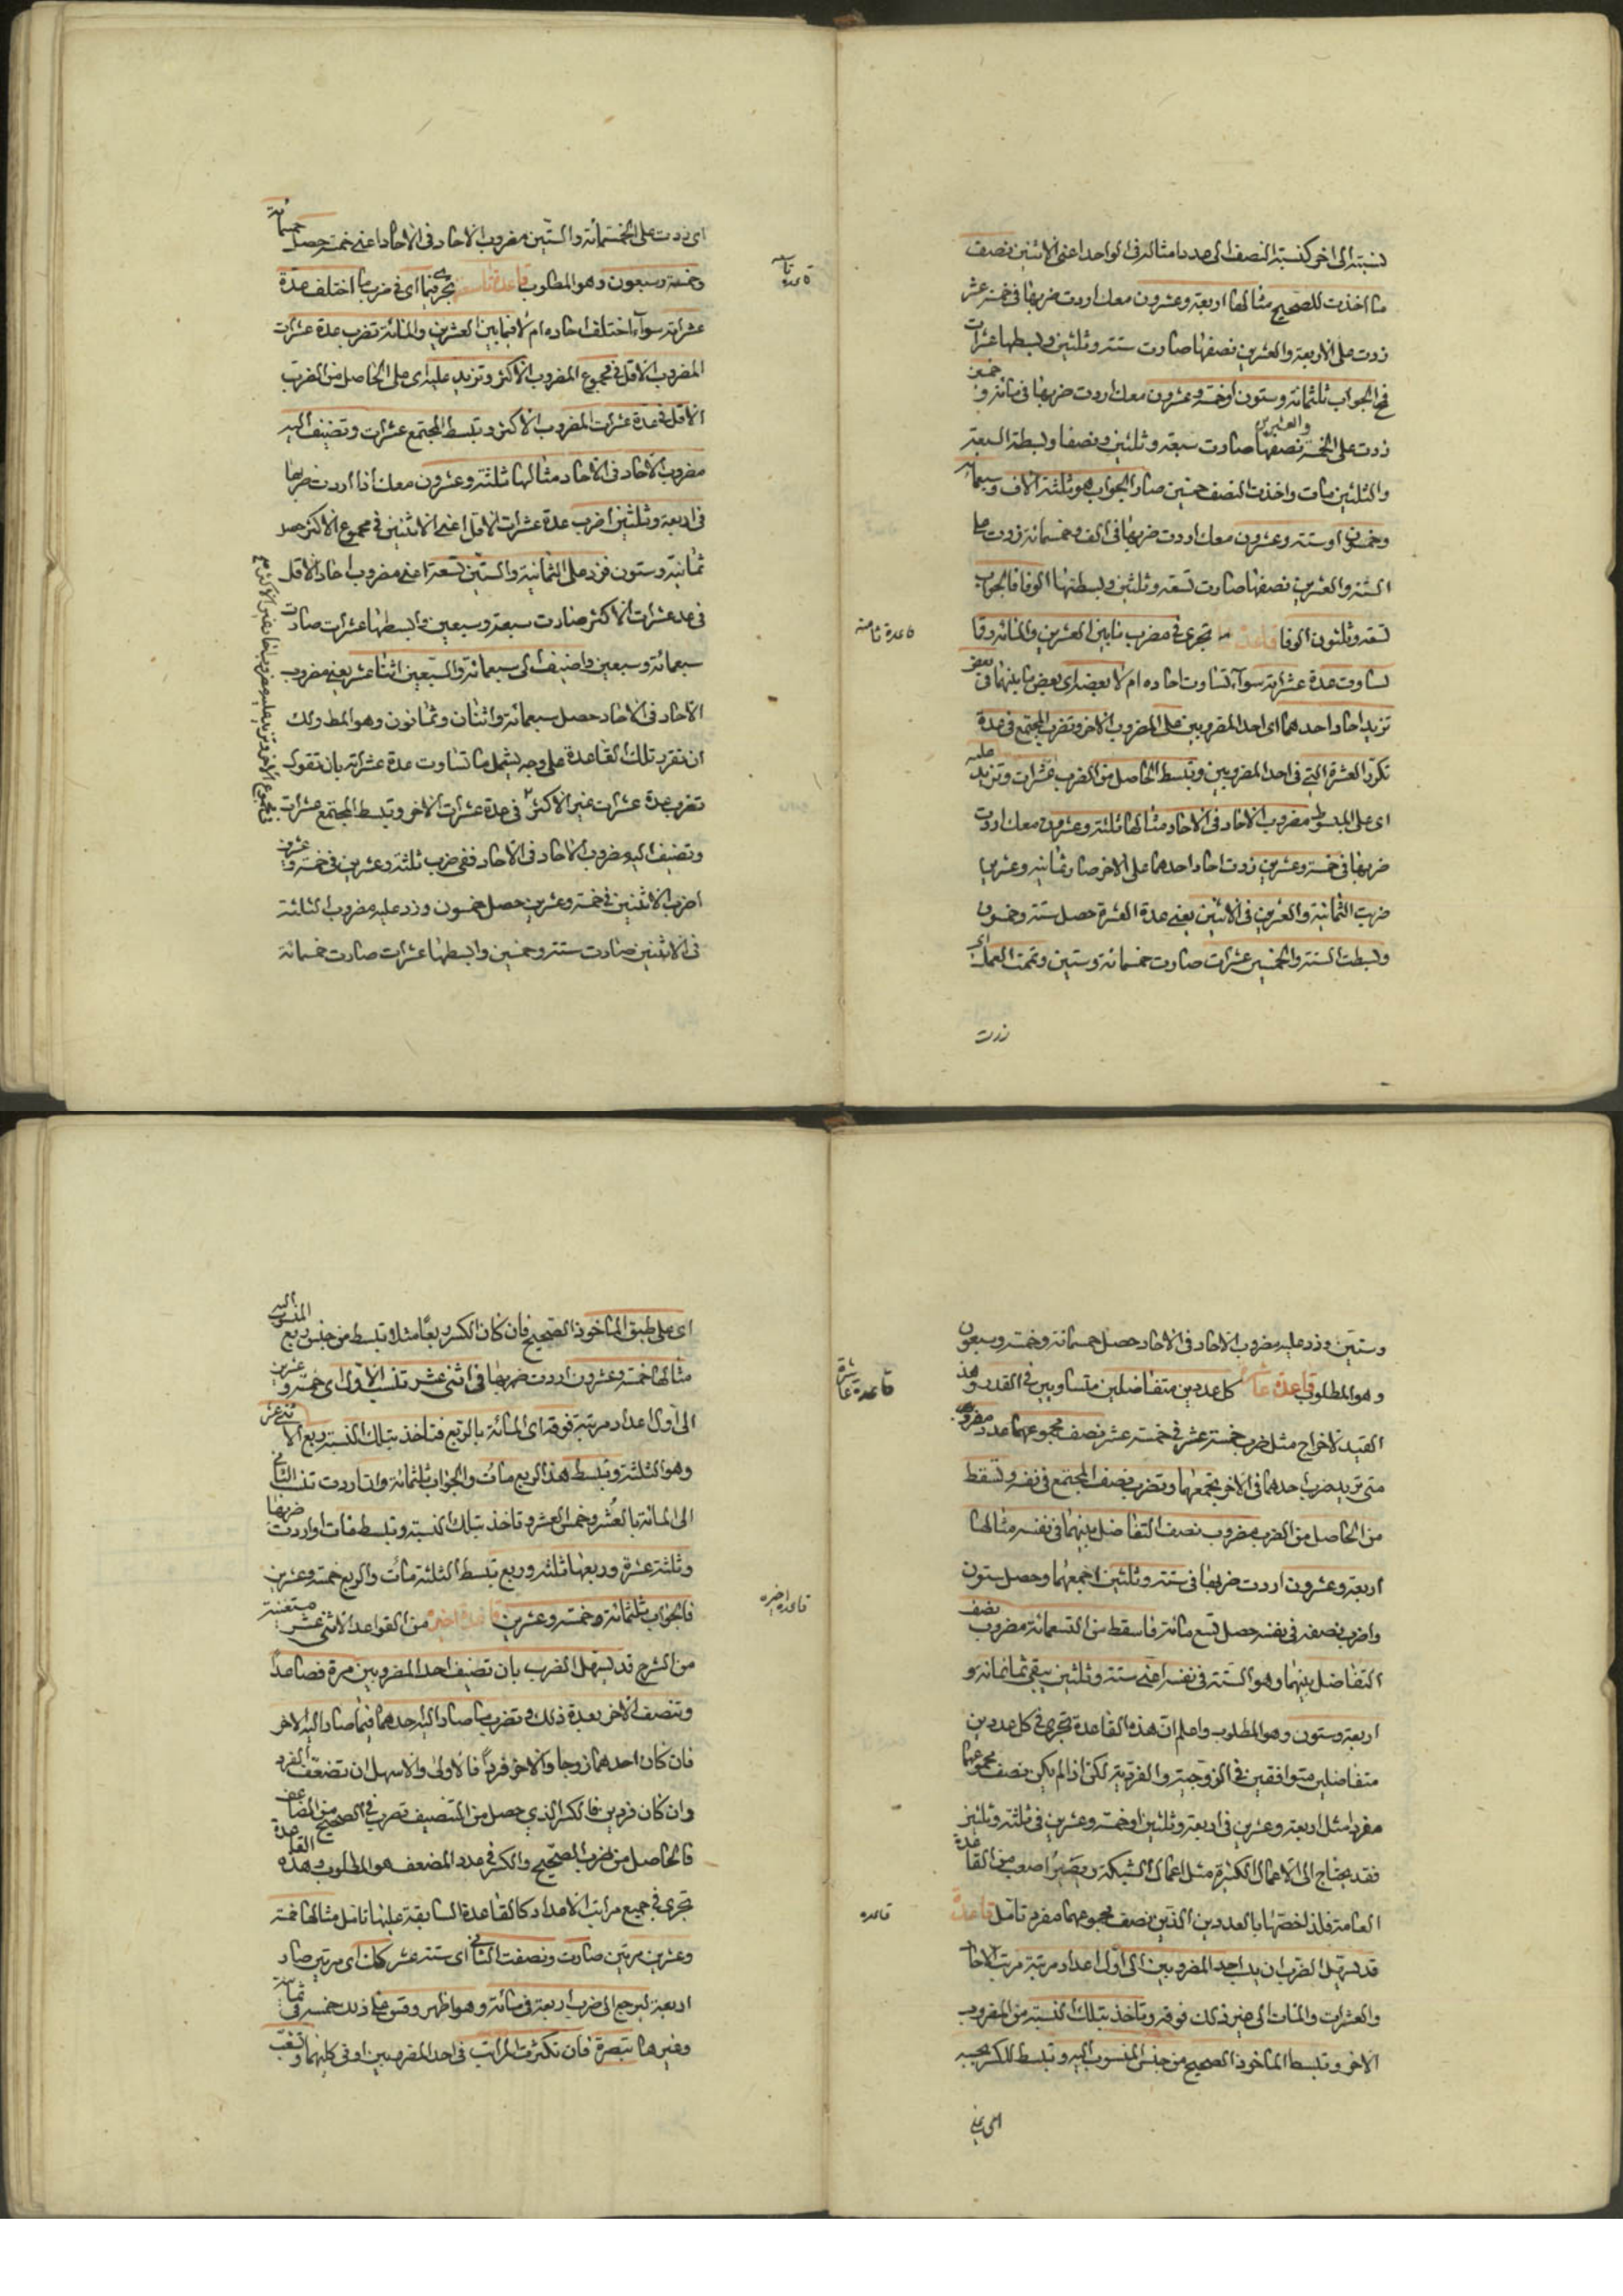 نسبته الى اخر كنسبة النصف الى عدد امثاله في الواحد اعني الاثنين نصف
ما اخذت للصحيح مثالها اربعة وعشرون معك اردت ضربها في خمسة عشر
زدت على الاربعة والعشرين نصفها صارت ستة وثلثين وبسطها عشرات
فح الجواب ثلثمائة وستون او خمسة وعشرون معك اردت ضربها في مائة وخمسين
زدت على الخمسة والعشرين نصفها صارت سبعة وثلثين ونصفا وبسطة السبعة
والثلثين مات واخذت النصف خمسين صار الجواب هو ثلثة الاف وسبعمائة
وخمسون او ستة وعشرون معك اردت ضربها في الف وخمسمائة زدت على
الستة والعشرين نصفها صارت تسعة وثلثين وبسطتها الوفا فالجواب
تسعة وثلثون الوفا قاعدة تجرى في مضرب ما بين العشرين والمائة وقا
قاعدة ثامنة
تساوت عدة عشراته سواء تساوت احاده ام لا بعضه اى بعض ما بينهما في بعض
تزيد احاد احدهما اى احد المضروبين على المضروب الاخر وتضرب المجتمع في عدة
تكرر العشرة التي في احد المضروبين وتبسط الحاصل من الضرب عشرات وتزيد عليه
اى على المبسوط مضروب الاحاد في الاحاد مثالها ثلثة وعشرون معك اردت
ضربها في خمسة وعشرين زدت احاد احدهما على الاخر صار ثمانية وعشرين
ضربت الثمانية والعشرين في الاثنين يعني عدة العشرة حصل ستة وخمسون
وبسطت الستة والخمسين عشرات صارت خمسمائة وستين وتممت العمل اى
زدت
اى زدت على الخمسمائة والستين مضروب الاحاد في الاحاد اعني خمسة عشر حصل خمسمائة
وخمسة وسبعون وهو المطلوب قاعدة تاسعة تجرى فيما اى في ضرب ما اختلف عدة
قاعدة تاسعه
عشراته سواء اختلف احاده ام لا فيما بين العشرين والمائة تضرب عدة عشرات
المضروب الاقل في مجموع المضروب الاكثر وتزيد عليه اى على الحاصل من الضرب
الاقل في عدة عشرات المضروب الاكثر وتبسط المجتمع عشرات وتضيف اليه
مضروب الاحاد في الاحاد مثالها ثلثة وعشرون معك اذا اردت ضربها
في اربعة وثلثين اضرب عدة عشرات الاقل اعني الاثنين في مجموع الاكثر حصل
ثمانية وستون فزد على الثمانية والستين تسعة اعني مضروب احاد الاقل
في عدد عشرات الاكثر صارت سبعة وسبعين وابسطها عشرات صارت
سبعمائة وسبعين واضيف الى سبعمائة والسبعين اثنا عشر يعني مضروب
الاحاد في الاحاد حصل سبعمائة واثنان وثمانون وهو المط ولك
ان تقرر تلك القاعدة على وجه يشمل ما تساوت عدة عشراته بان تقول
تضرب عدة عشرات غير الاكثر في عدة عشرات الاخر وتبسط المجتمع عشرات
وتضيف اليه مضروب الاحاد في الاحاد ففي ضرب ثلثة وعشرين في خمسة وعشرين
اضرب الاثنين في خمسة وعشرين حصل خمسون وزد عليه مضروب الثلثة
في الاثنين صارت ستة وخمسين وابسطها عشرات صارت خمسمائة
وستين وزد عليه مضروب الاحاد في الاحاد حصل خمسمائة وخمسة وسبعون
وهو المطلوب قاعدة عاشرة كل عددين متفاضلين متساويين في القدر وهذ
قاعدة عاشرة
القيد لاخراج مثل ضرب خمسة عشر في خمسة عشر نصف مجموعهما عدد مفرد
متى تريد ضرب احدهما في الاخر تجمعهما وتضرب نصف المجتمع في نفسه وتسقط
من الحاصل من الضرب مضروب نصف التفاضل بينهما في نفسه مثالها
اربعة وعشرون اردت ضربها في ستة وثلثين اجمعهما وحصل ستون
واضرب نصفه في نفسه حصل تسع مائة فاسقط من التسعمائة مضروب نصف
التفاضل بينهما وهو الستة في نفسه اعني ستة وثلثين يبقى ثمانمائة و
اربعة وستون وهو المطلوب واعلم ان هذه القاعدة تجرى في كل عددين
متفاضلين متوافقين في الزوجية والفردية لكن اذا لم يكن نصف مجموعهما
مفردا مثل اربعة وعشرين في اربعة وثلثين او خمسة وعشرين في ثلثة وثلثين
فقد يحتاج الى الاعمال الكثيرة مثل اعمال الشبكة ويصير اصعب من القاعدة
العامة فلذا خصها بالعددين الذين نصف مجموعهما مفرد تامل قاعدة
قاعده
قد يسهل الضرب ان ينسب احد المضروبين الى اول اعداد مرتبة مرتبة الاحاد
والعشرات والمئات الى غير ذلك فوقه وتاخذ بتلك النسبة من المضروب
الاخر وتبسط الماخوذ الصحيح من جنس المنسوب اليه وتبسط الكسر بحسبه
اى على
اى على طبق الماخوذ الصحيح فان كان الكسر ربعا مثلا وتبسط من جنس ربع المنسوب اليه
مثالها خمسة وعشرون اردت ضربها في اثنى عشر تنسب الاول اى خمسة وعشرين
الى اول اعداد مرتبة فوقه اى المائة بالربع فتاخذ بتلك النسبة ربع الاثنى عشر
وهو الثلثة وتبسط هذا الربع مات والجواب ثلثمائة وان اردت تنسب الثاني
الى المائة بالعشر وخمس العشر وتاخذ بتلك النسبة وتبسط مئات او اردت ضربها
وثلثة عشرة وربعها ثلثة وربع تبسط الثلثة مات والربع خمسة وعشرين
فالجواب ثلثمائة وخمسة وعشرين قاعدة اخيرة من القواعد الاثنى عشر مستغنية
قاعده اخيره
من الشرح قد يسهل الضرب بان تضيف احد المضروبين مرة فصاعدا
وتنصف الاخر بعدة ذلك وتضرب ما صار اليه احدهما فيما صار اليه الاخر
فان كان احدهما زوجا والاخر فردا فالاولى والاسهل ان تضعف الفرد
وان كان فردين فالكسر الذي حصل من التنصيف تضرب في الصحيح من المضاعف
فالحاصل من ضرب الصحيح والكسر في عدد المضعف هو المطلوب وهذه القاعدة
تجرى في جميع مراتب الاعداد كالقاعدة السابقة عليها تامل مثالها خمسة
وعشرين مرتين صارت ونصفت الثاني اى ستة عشر كذلك اى مرتين صار
اربعة ليرجع الى ضرب اربعة في مائة وهو اظهر وقس على ذلك خمسة في ثمانية
وغيرها تبصرة فان تكثرت المراتب في احد المضروبين او في كليهما وتشعب